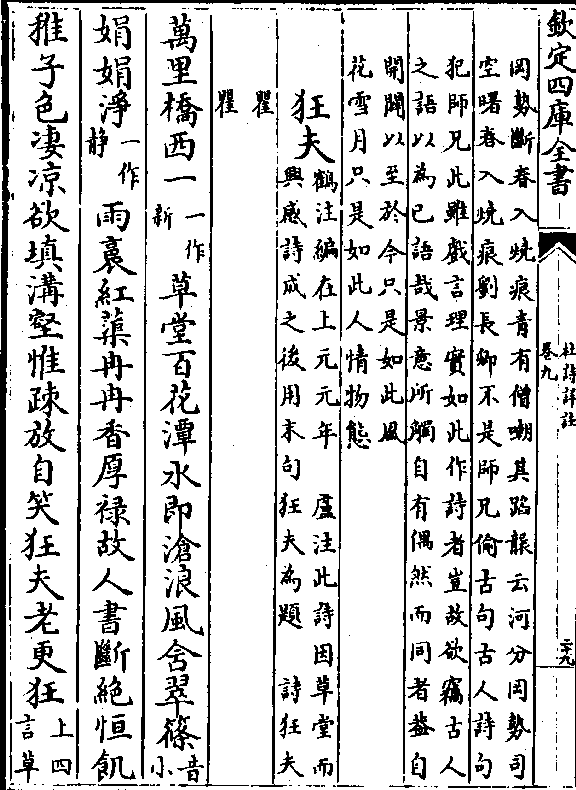 欽定四庫全書
杜詩詳註
卷九
二十九
岡勢斷春入燒痕青有僧嘲其蹈襲云河分岡勢司
空曙春入燒痕劉長卿不是師兄偷古句古人詩句
犯師兄此雖戲言理實如此作詩者豈故欲竊古人
之語以為已語哉景意所觸自有偶然而同者葢自
開闢以至於今只是如此風
花雪月只是如此人情物態
狂夫 鶴注編在上元元年 盧注此詩因草堂而
興感詩成之後用末句狂夫為題 詩狂夫
瞿
瞿
萬里橋西一一作新草堂百花潭水即滄浪風含翠篠音小
娟娟淨一作静雨裛紅蕖冉冉香厚祿故人書斷絕恒飢
稚子色凄凉欲填溝壑惟疎放自笑狂夫老更狂上四言草